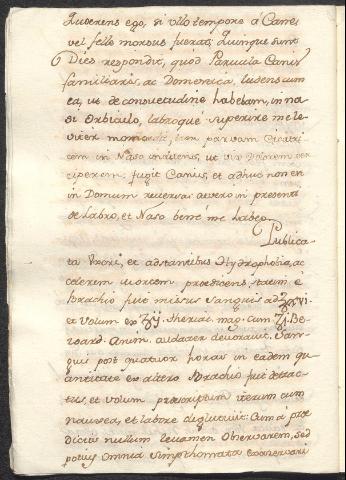 Quærens ego, si ullo tempore à Canæ
vel fele morsus fuerat; Quinque sunt
Dies respondit, quod Parucia Canis
familiaris, ac Domenica, ludens cum
ea, ut de consuetudine habebam, in na
si Orbiculo, labroque superiore me le
viter momordit, tam parvam Cicatri
cem in Naso inurens, ut vix Dolorem per
ciperem, fugit Canis, et adhuc non est
in Domum reversa: at vero in presenti
de Labro, et Naso bene me habeo.
Publica-
ta Uxori, et adstantibus Hydrophobia, ac
celerem mortem prædicens, statim è
brachio fuit missus Sanguis ad
et Volum ex Theriac. mag. cum Be-
zoard. Anim. audacter devoravit. San-
guis post quatuor horas in eadem qu
antitate ex altero Brachio fuit detrac-
tus, et volum præscriptum iterum cum
nausea, et labore deglutivit: Cum à præ
dictis nullum levamen Observarem, sed
potius Omnia Simpthomata exacervari